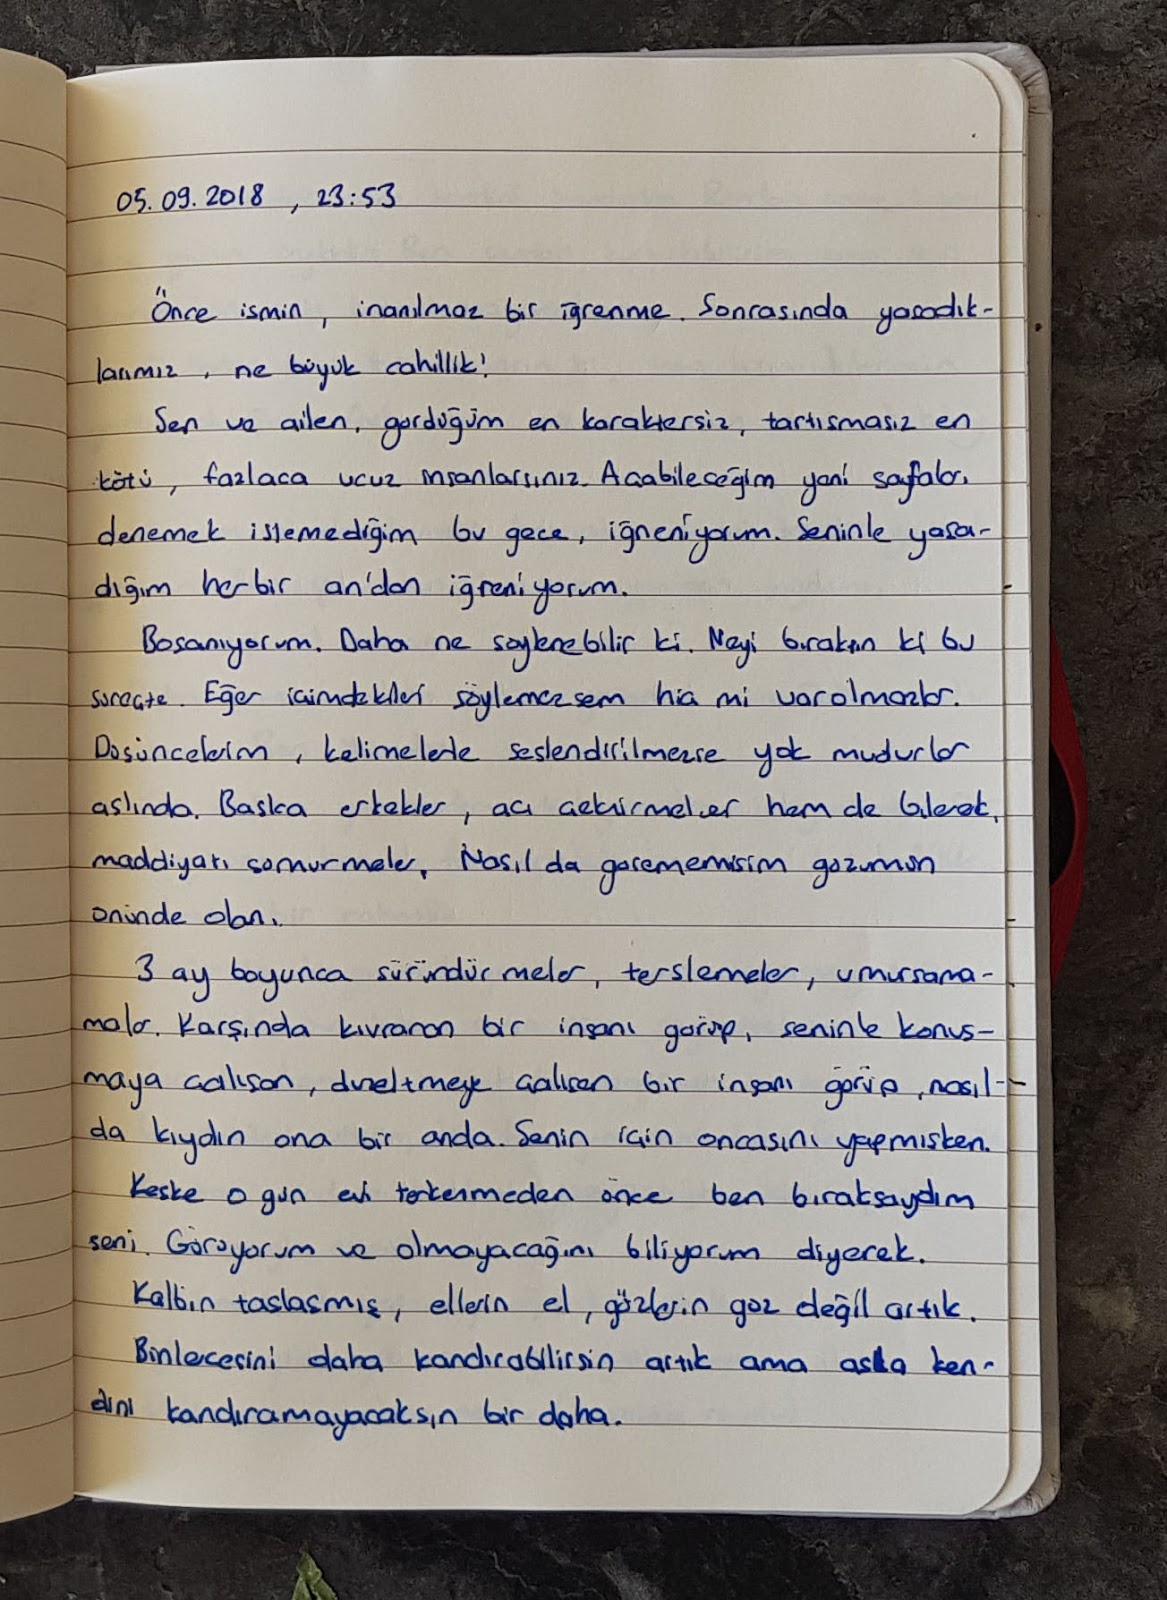 05.09.2018 , 23:53
Önce ismin, inanılmaz bir iğrenme. Sonrasında yasadık-
larımız, ne büyük cahillik!
Sen ve ailen, gördüğüm en karaktersiz, tartısmasız en
kötü, fazlaca ucuz insanlarsınız. Acabileceğim yeni sayfalar,
denemek istemediğim bu gece, iğneniyorum. Seninle yasa-
dığım herbir an'dan iğreniyorum.
Bosanıyorum. Daha ne soylenebilir ki. Neyi bıraktın ki bu
surecte. Eğer icimdekileri söylemezsem hic mi varolmazlar.
Dusuncelerim, kelimelerle seslendirilmezse yok mudurlar
aslında. Baska erkekler, acı cektirmeler hem de bilerek,
maddiyatı somurmeler, Nasıl da gorememisim gozumun
onunde olanı.
3 ay boyunca süründürmeler, terslemeler, umursama-
malar. Karşında kıvranan bir insanı görüp, seninle konus-
maya calısan, duzeltmeye calısan bir insanı görüp, nasıl-
da kıydın ona bir anda. Senin icin oncasını yapmısken.
Keske o gun evi terketmeden önce ben bıraksaydım
seni. Görüyorum ve olmayacağını biliyorum diyerek.
Kalbin taslasmış, ellerin el, gözlerin goz değil artık.
Binlercesini daha kandırabilirsin artık ama asla ken-
dini kandıramayacaksın bir daha.